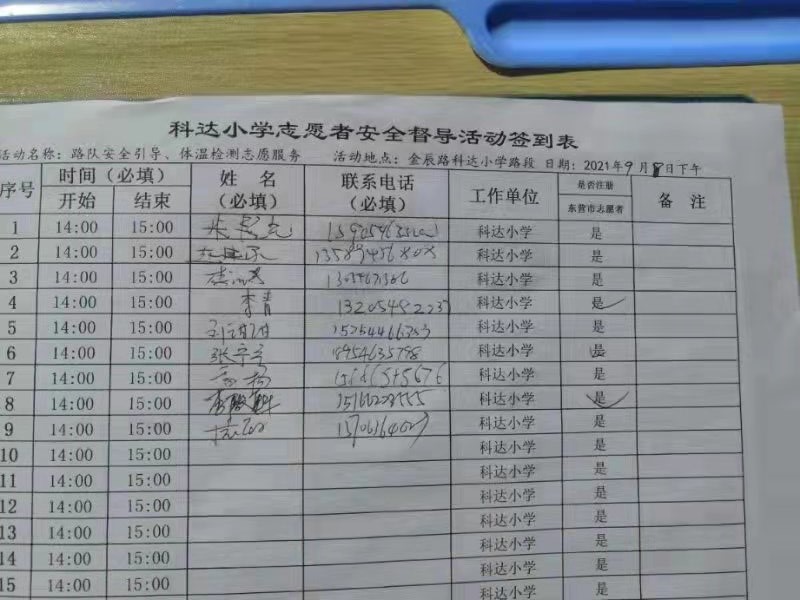 科达小学志愿者安全督导活动签到表
活动名称：路队安全引导、体温检测志愿服务 活动地点：金辰路科达小学路段 日期：2021年9月8日下午
序号 时间（必填） 姓名（必填） 联系电话（必填） 工作单位 是否注册东营市志愿者 备注
开始 结束
1 14:00 15:00 科达小学 是
2 14:00 15:00 科达小学 是
3 14:00 15:00 科达小学 是
4 14:00 15:00 李青 科达小学 是
5 14:00 15:00 科达小学 是
6 14:00 15:00 科达小学 是
7 14:00 15:00 科达小学 是
8 14:00 15:00 科达小学 是
9 14:00 15:00 科达小学 是
10 14:00 15:00 科达小学 是
11 14:00 15:00 科达小学 是
12 14:00 15:00 科达小学 是
13 14:00 15:00 科达小学 是
14 14:00 15:00 科达小学 是
15 14:00 15:00 科达小学 是